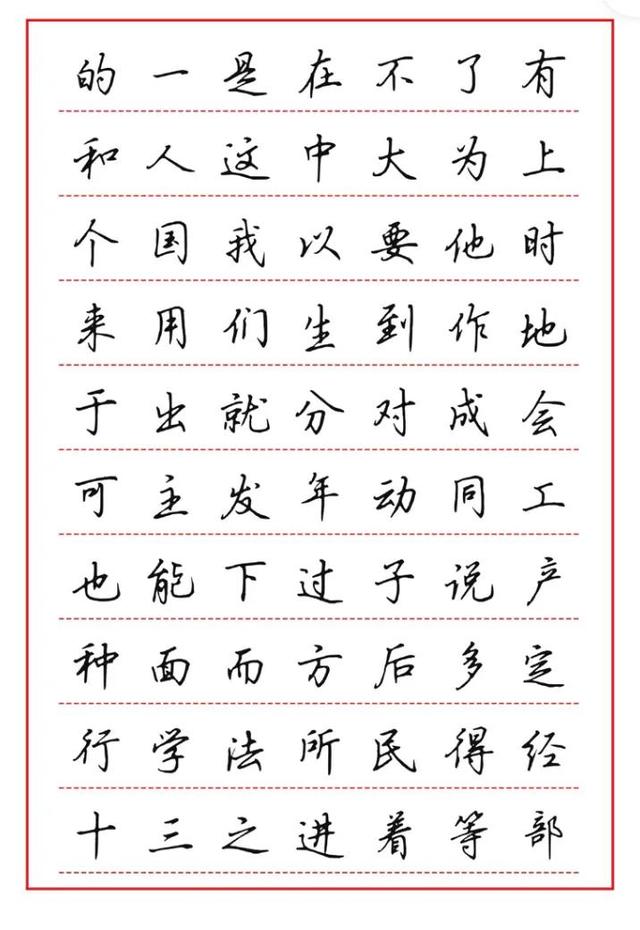 的一是在不了有
和人这中大为上
个国我以要他时
来用们生到作地
于出就分对成会
可主发年动同工
也能下过子说产
种面而方后多定
行学法所民得经
十三之进着等部